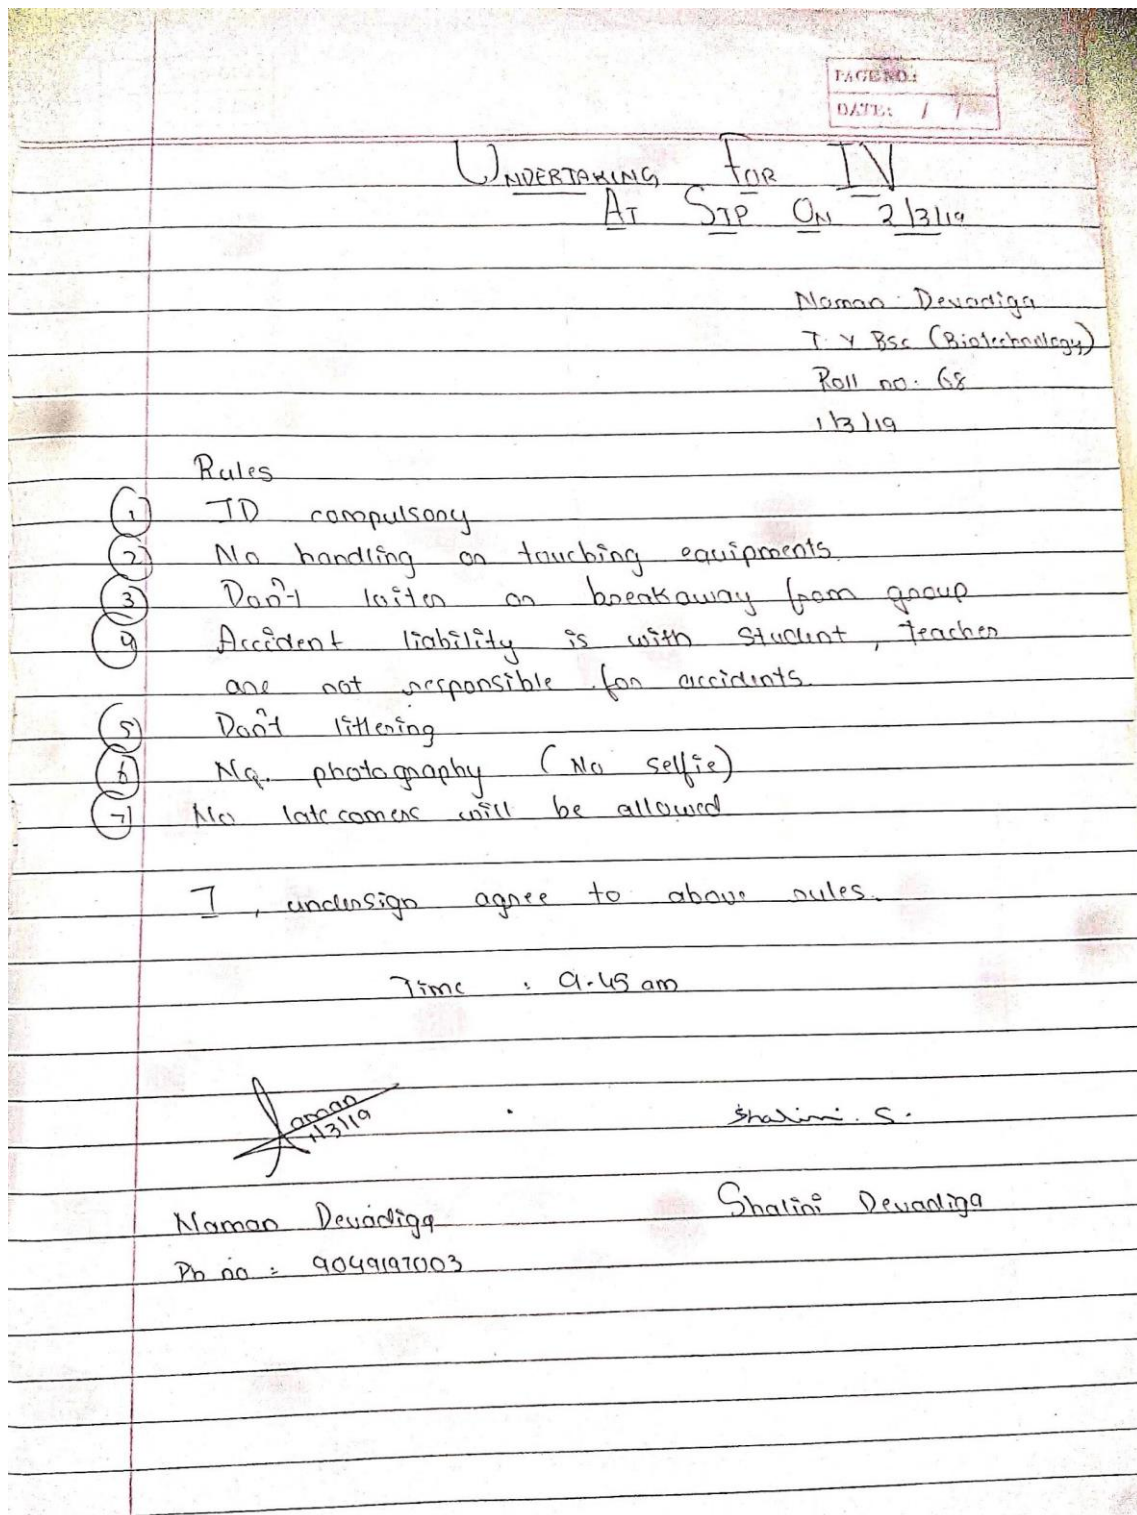 PAGE NO.:
DATE: / /
UNDERTAKING FOR IV
AT STP ON 2/3/19
Naman Devadiga
T. Y BSc (Biotechnology)
Roll no. 68
1/3/19
Rules
1 ID compulsory
2 No handling or touching equipments
3 Don't loiter or breakaway from group
4 Accident liability is with student, teacher
are not responsible for accidents.
5 Don't littering
6 No. photography (No selfie)
7 No late comers will be allowed
I, undersign agree to above rules.
Time : 9.45 am
Naman
1/3/19
Shalini. S.
Naman Devadiga
Shalini Devadiga
Ph no : 9049197003